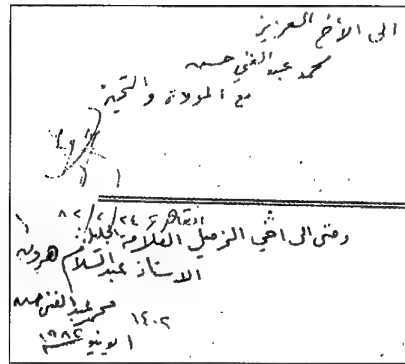 الى الأخ العزيز
محمد عبد الغني حسن
مع المودة والتحية
القاهرة ٢٤ / ٢ / ٨٢
ومنى الى اخي الزميل العلامة الجليل
الاستاذ عبد السلام هرون
محمد عبد الغني حسن
١٤٠٢
١ يونيو ١٩٨٢